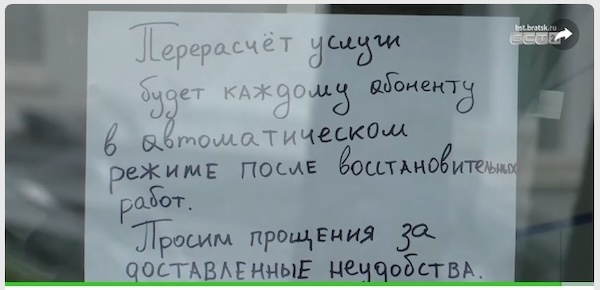 bst.bratsk.ru
Перерасчёт услуги
будет каждому абоненту
в автоматическом
режиме после восстановительных
работ.
Просим прощения за
доставленные неудобства.